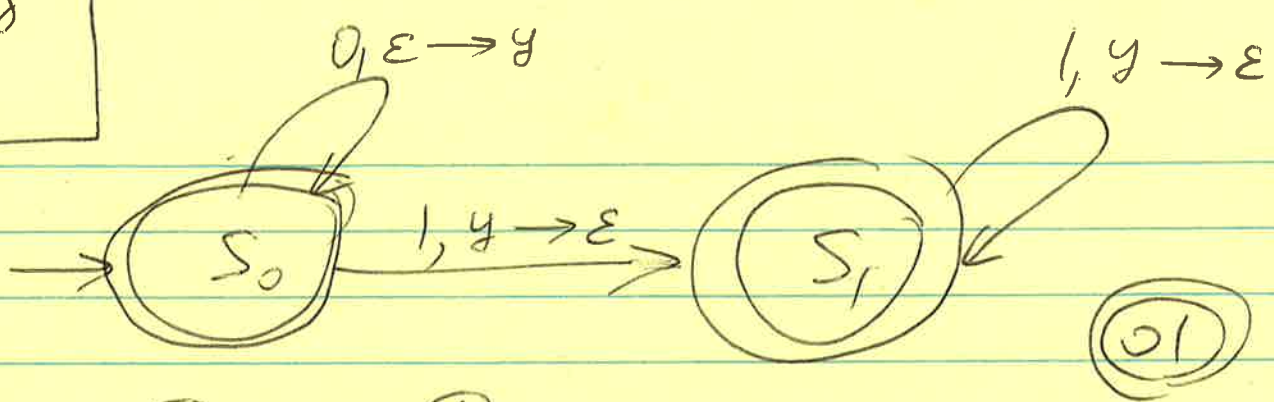 0, ε → y
1, y → ε
S₀
1, y → ε
S₁
01